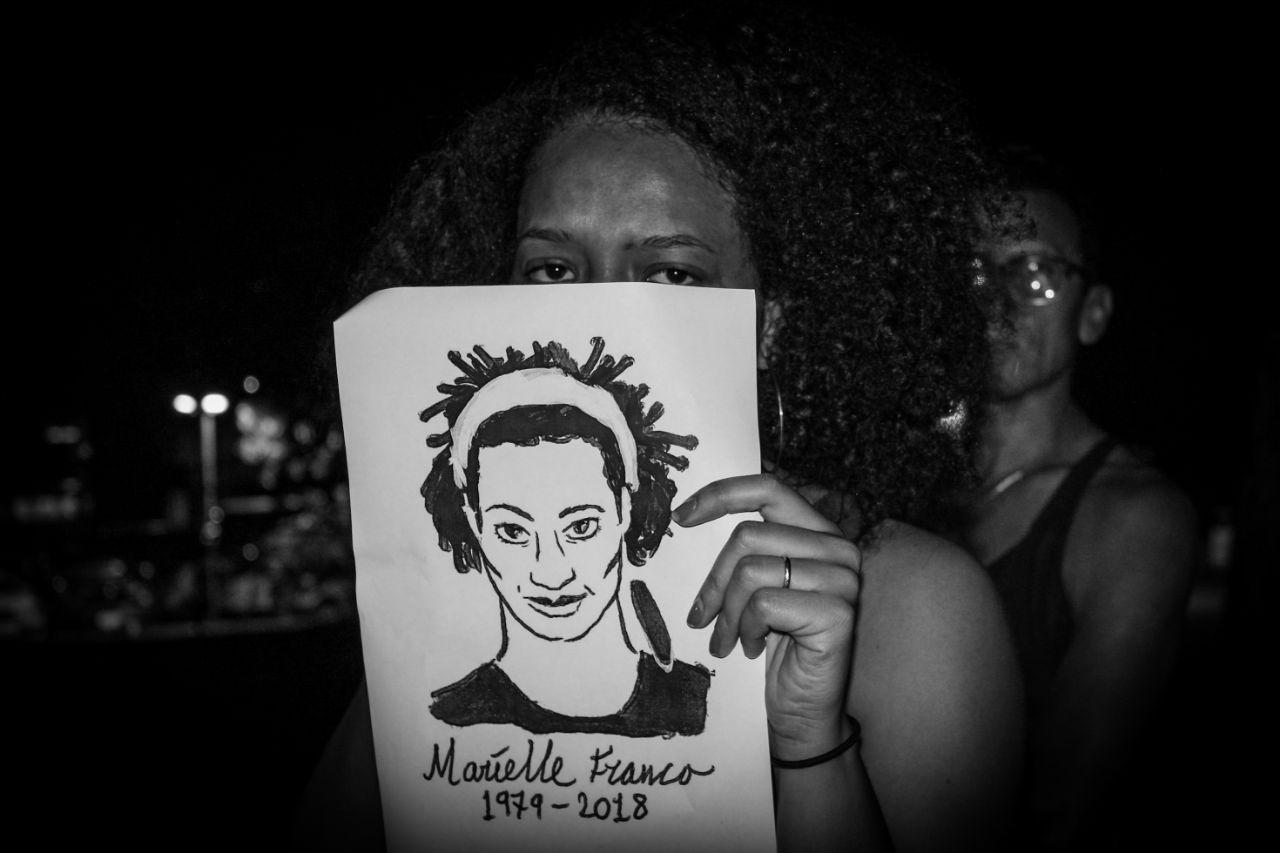 Marielle Franco
1979-2018